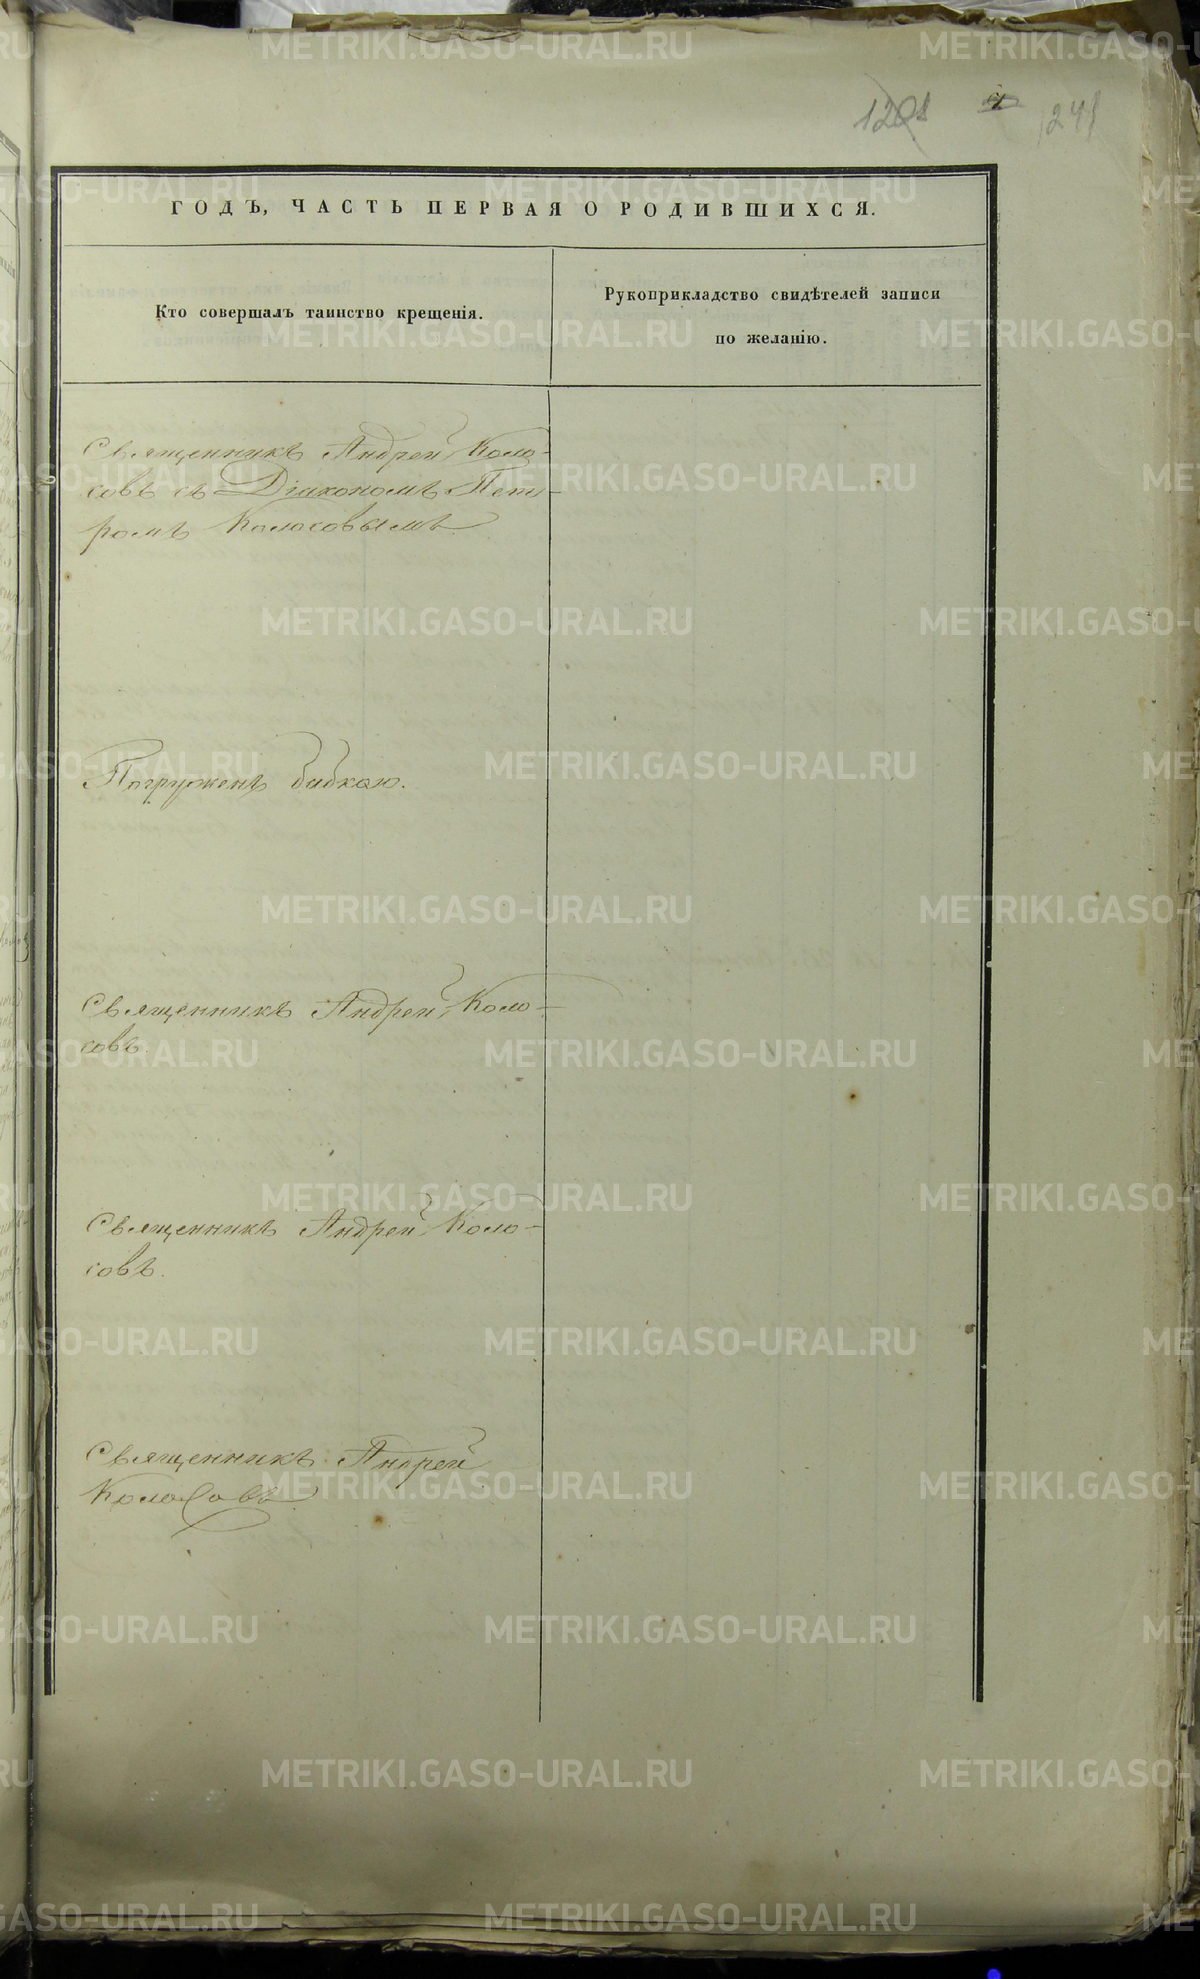 1208 4 241
ГОДЪ, ЧАСТЬ ПЕРВАЯ О РОДИВШИХСЯ.
Кто совершалъ таинство крещенія.
Рукоприкладство свидѣтелей записи
по желанію.
Священникъ Андрей Коло-
совъ съ Діакономъ Пет-
ромъ Колосовымъ
Погруженъ бабкою.
Священникъ Андрей Коло-
совъ.
Священникъ Андрей Коло-
совъ.
Священникъ Андрей
Колосовъ
METRIKI.GASO-URAL.RU